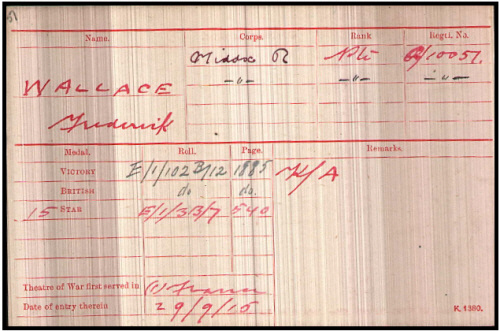 Name. Corps. Rank Regtl. No.
Middx R Pte G/10057.
WALLACE -"- -"- -"-
Frederick
Medal. Roll. Page. Remarks.
VICTORY E/1/102B/12 1885 K/A
BRITISH do do.
15 STAR E/1/3B/7 540
Theatre of War first served in (1) France
Date of entry therein 29/9/15
K. 1380.